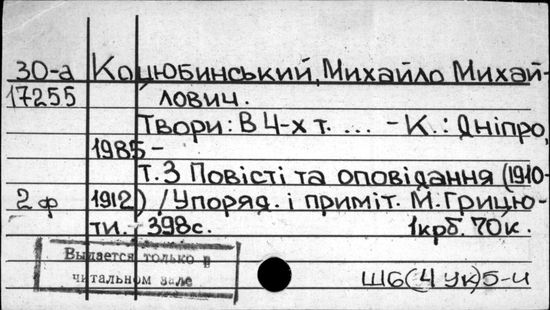 30-а Коцюбинський, Михайло Михай-
17255 лович.
Твори: В 4-х т. ... - К.: Дніпро,
1985 -
Т.3 Повісті та оповідання (1910-
2 ф 1912) / Упоряд. і приміт. М. Грицю-
ти. - 398с. 1крб. 70к.
Выдается только в
читальном зале
Ш6(4Ук)5-4